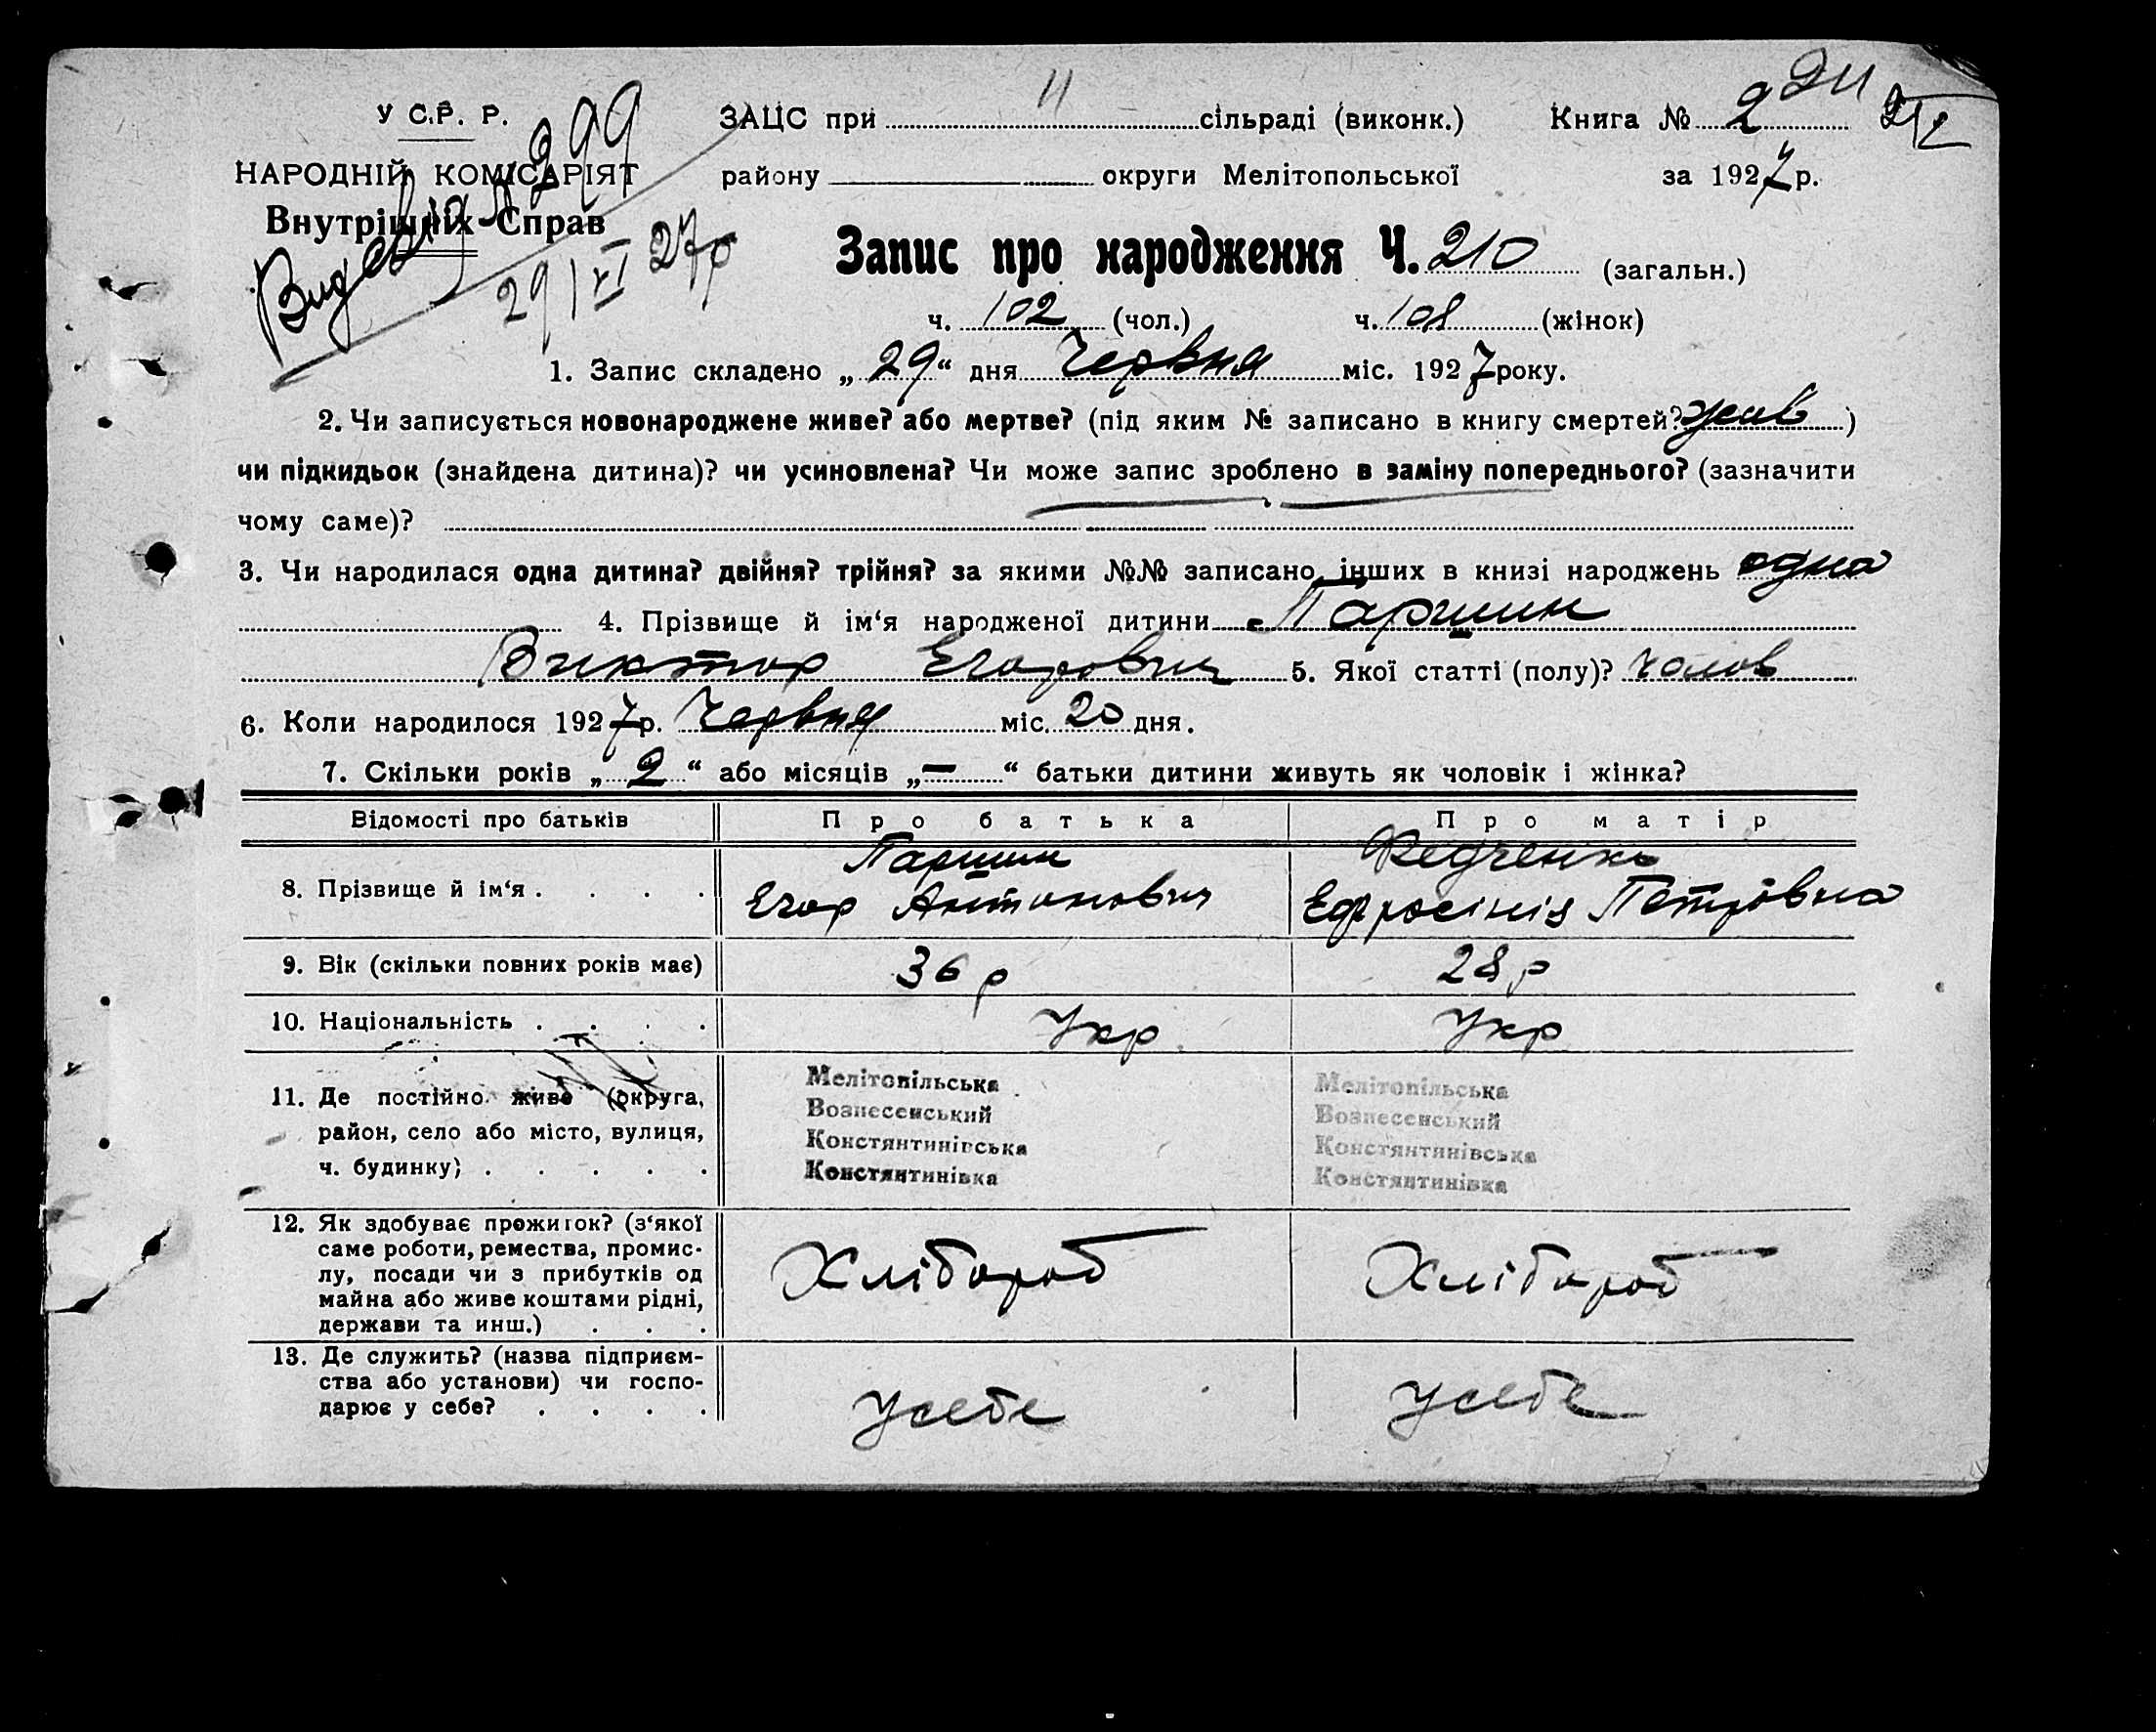 У С.Р. Р.
НАРОДНІЙ КОМІСАРІЯТ
Внутрішніх Справ
№ 299
29/VI 27р
11
ЗАЦС при сільраді (виконк.) Книга № 2
району округи Мелітопольської за 1927 р.
Запис про народження Ч. 210 (загальн.)
ч. 102 (чол.) ч. 108 (жінок)
1. Запис складено „ 29 “ дня Червня міс. 1927 року.
2. Чи записується новонароджене живе? або мертве? (під яким № записано в книгу смертей? жив )
чи підкидьок (знайдена дитина)? чи усиновлена? Чи може запис зроблено в заміну попереднього? (зазначити
чому саме)?
3. Чи народилася одна дитина? двійня? трійня? за якими №№ записано інших в книзі народжень одна
4. Прізвище й ім‘я народженої дитини Паршин
Виктор Егорович 5. Якої статті (полу)? чолов
6. Коли народилося 1927 р. Червня міс. 20 дня.
7. Скільки років „ 2 “ або місяців „ — “ батьки дитини живуть як чоловік і жінка?
Відомості про батьків Про батька Про матір
8. Прізвище й ім‘я . . . . Паршин Федченко
Егор Антонович Ефросінія Петровна
9. Вік (скільки повних років має) 36 р 28 р
10. Національність . . . . Укр Укр
11. Де постійно живе (округа, район, село або місто, вулиця, ч. будинку) . . . . .
Мелітопільська Мелітопільська
Вознесенський Вознесенський
Констянтинівська Констянтинівська
Констянтинівка Констянтинівка
12. Як здобуває прожиток? (з‘якої
саме роботи, ремества, промис-
лу, посади чи з прибутків од
майна або живе коштами рідні,
держави та инш.) . . .
Хлібороб Хлібороб
13. Де служить? (назва підприєм-
ства або установи) чи госпо-
дарює у себе? . . . .
У себе У себе